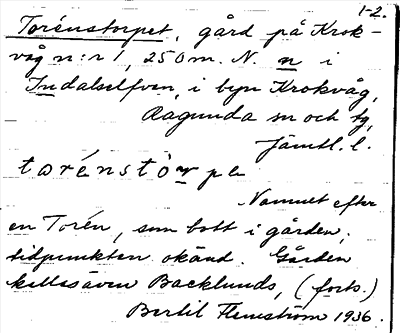 1-2.
Torénstorpet, gård på Krok-
våg n:r 1, 250 m. N. n i
Indalselfven, i byn Krokvåg,
Ragunda sn och tg,
Jämtl. l.
torénstòrpe
Namnet efter
en Torén, som bott i gården;
tidpunkten okänd. Gården
kallas även Backlunds, (forts.)
Bertil Flemström 1936.